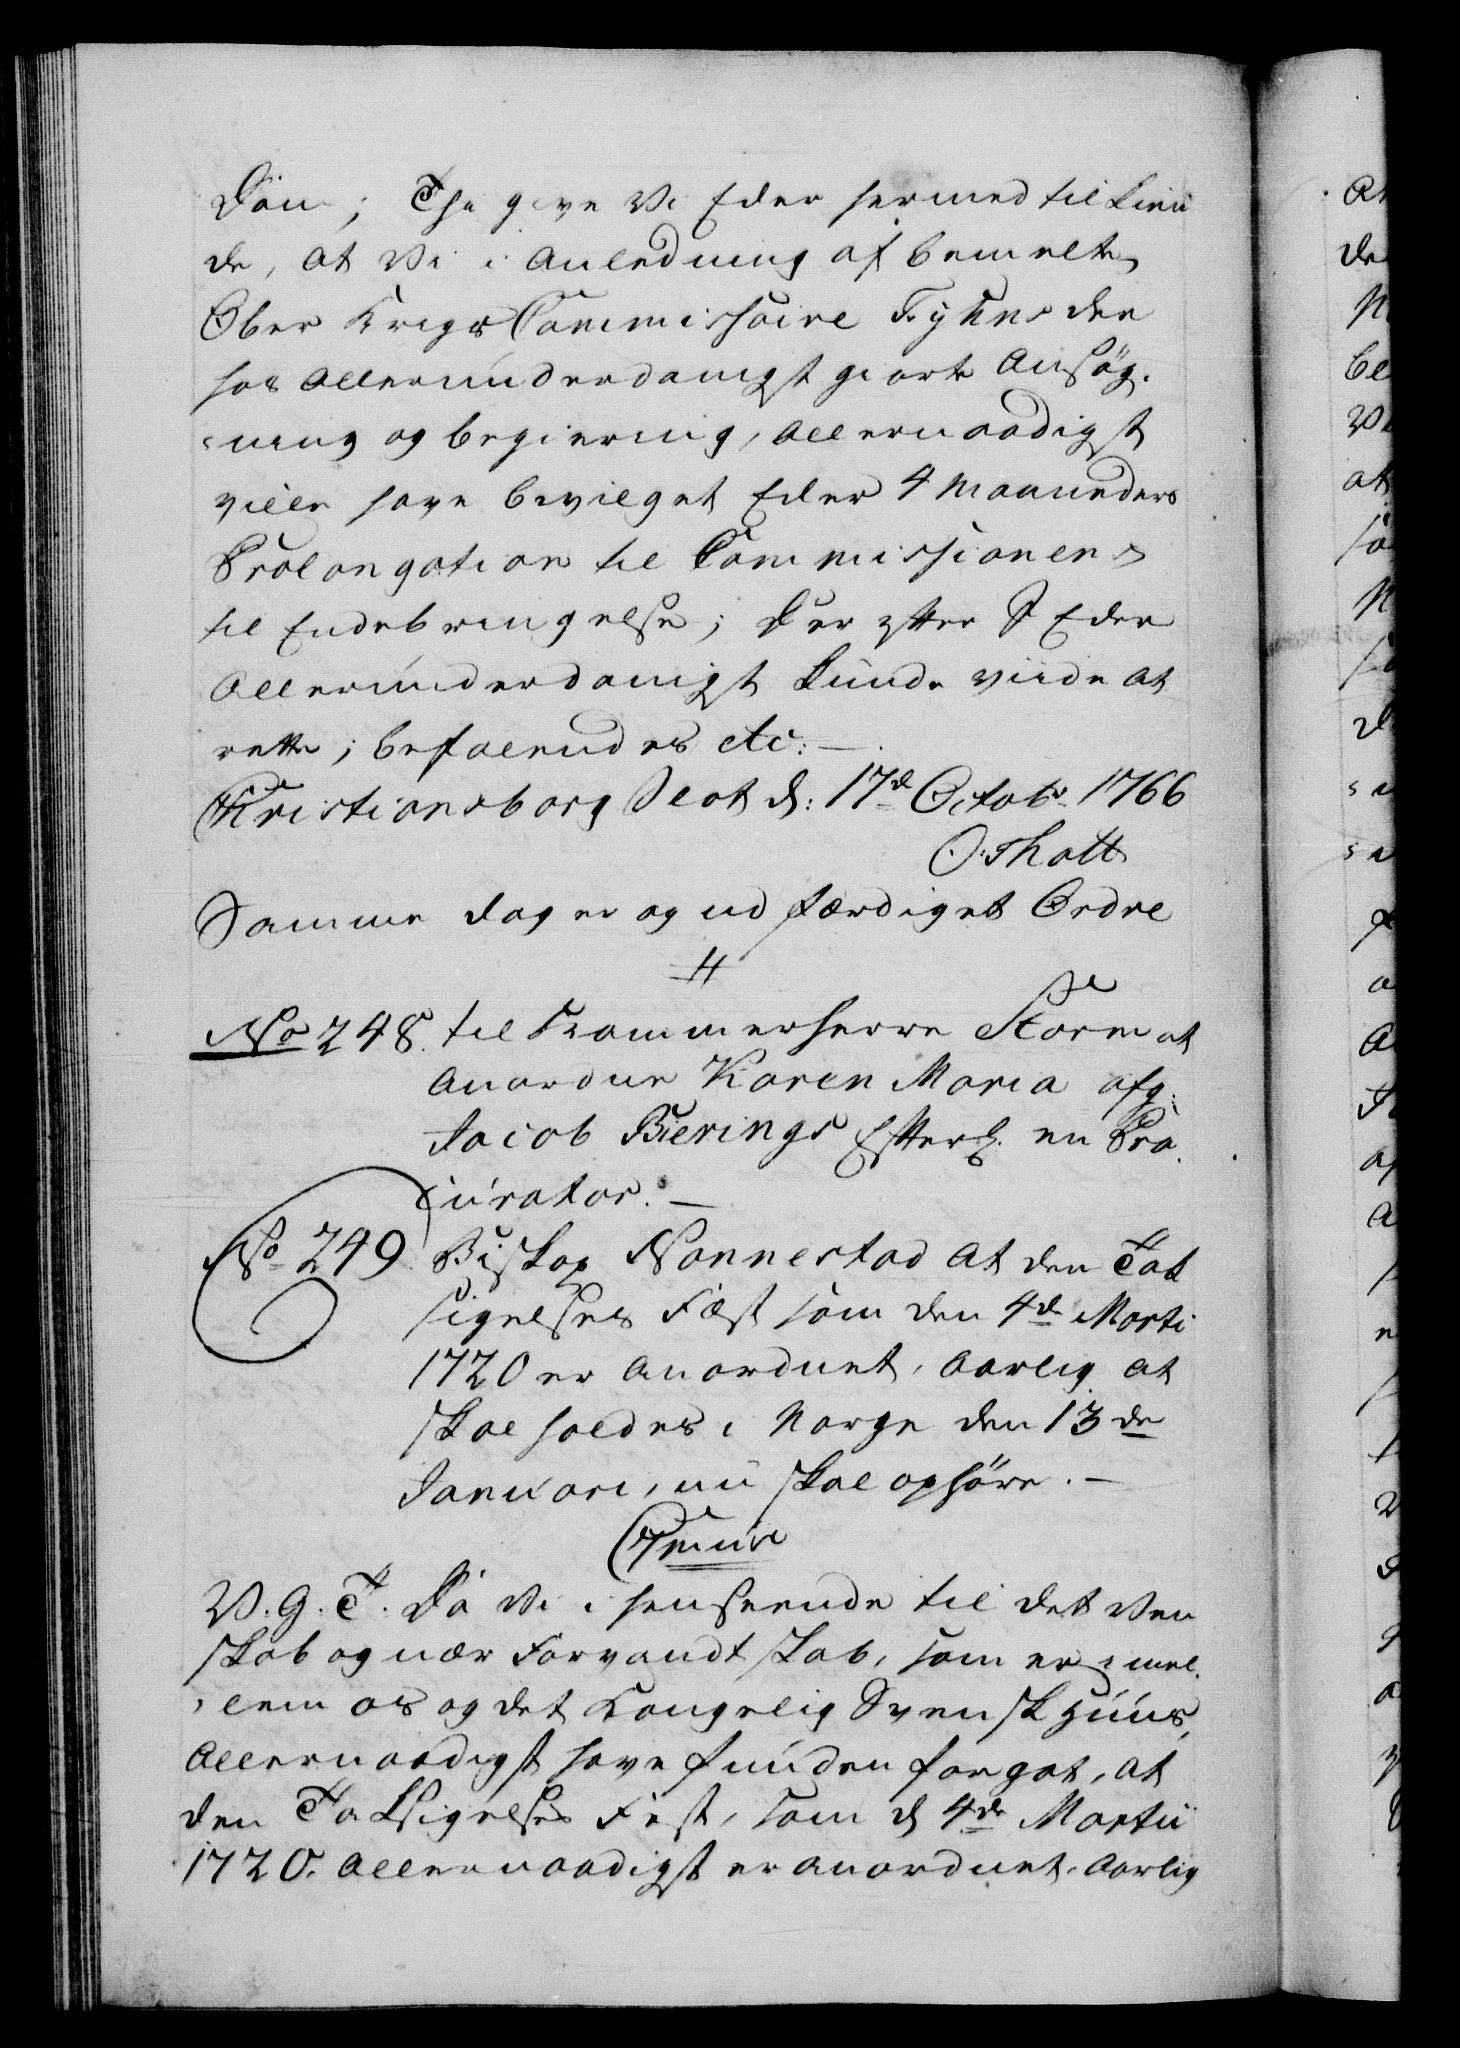 Döm; Thi give Vi Eder hermed til kien
de, at Vi i Anledning af bemelte
Ober Krigs Commissaire Fyhns der
hos Allerunderdanigst giorte Ansøg-
ning og begiering, Allernaadigst
ville have bevilget Eder 4 Maaneders
Prolongation til Commissionens
til Endebringelse; Der efter I Eder
Allerunderdanigst kunde viide at
rette; befalendes etc: —
Christiansborg Slot d: 17de Octobr 1766
O. Thott
Samme dag er og udfærdiget Ordre
No 248. til Kammerherre Storm at
Anordne Karen Maria afg:
Jacob Bierings Efterl. en Pro-
curator. —
No 249 Biskop Nannestad at den Tak
sigelses Fæst som den 4de Marti
1720 er Anordnet, Aarlig at
skal holdes i Norge den 13de
Januari, nu skal ophøre. —
V. G. T. Da Vi i henseende til det Ven
skab og nær Forvandtskab, som er imel-
lem os og det Kongelig Svensk Huus,
Allernaadigst have funden forgot, at
den Taksigelses Fest, som d 4de Martii
1720. Allernaadigst er anordnet, Aarlig